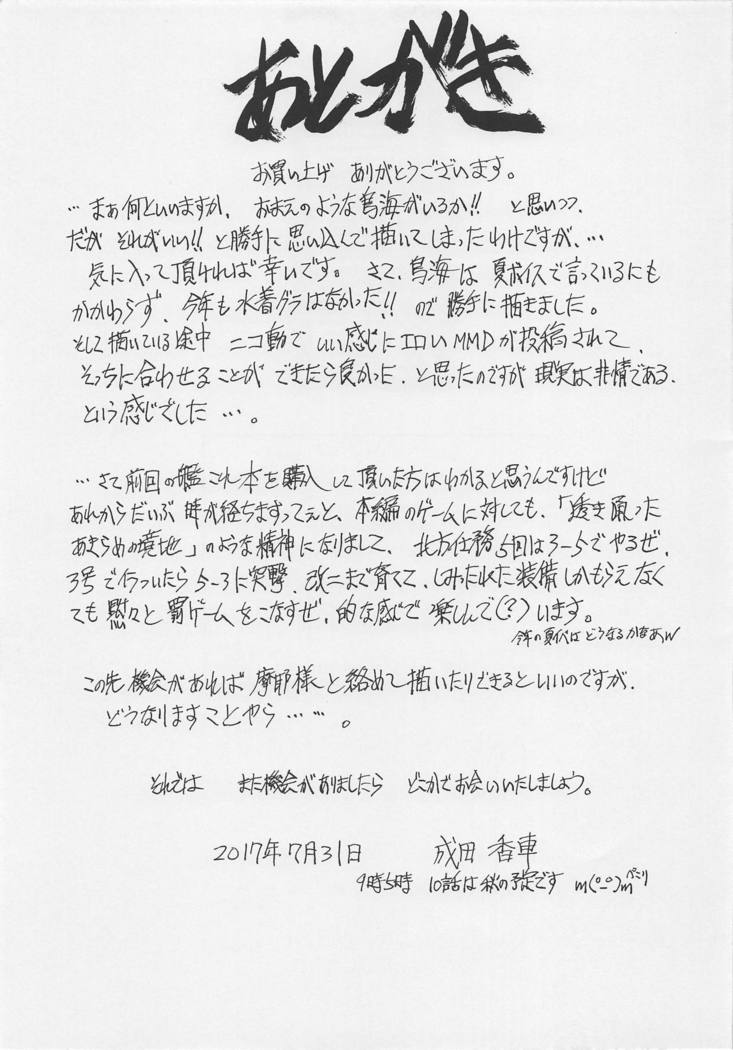 あとがき
お買い上げ ありがとうございます。
… まぁ何といいますか、 おまえのような鳥海がいるか!! と思いつつ、
だが それがいい!! と勝手に思い込んで描いてしまったわけですが、…
気に入って頂ければ幸いです。 さて、鳥海は 夏ボイスで言っているにも
かかわらず、今年も水着グラはなかった!! ので 勝手に描きました。
そして描いている途中 ニコ動で いい感じにエロいMMDが投稿されて、
そっちに合わせることが できたら良かった、と思ったのですが 現実は非情である、
という感じでした …。
… さて前回の艦これ本を購入して頂いた方はわかると思うんですけど
あれからだいぶ時が経ちますってぇと、本編のゲームに対しても、「透き通った
あきらめの境地」のような精神になりまして、 北方任務5回は3-5でやるぜ、
3号でイラついたら5-3に突撃、改二まで育てて、しみったれた装備しかもらえなく
ても 黙々と 罰ゲームをこなすぜ、的な感じで 楽しんで(?)います。
今年の夏イベはどうなるかなぁw
この先 機会があれば 摩耶様と絡めて描いたりできるといいのですが、
どうなりますことやら ……。
それでは また機会がありましたら どこかでお会いいたしましょう。
2017年7月31日 成田 香車
9時5時 10話は秋の予定です m(°_°)m ペこり